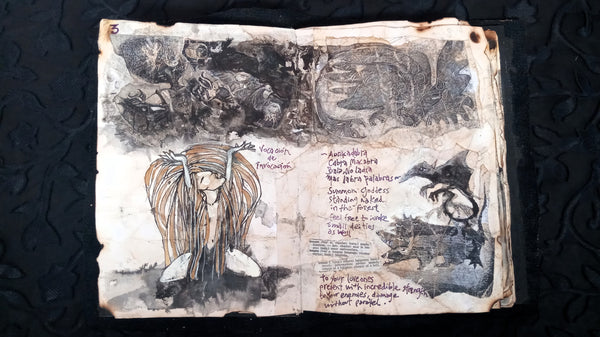 3
Vocación
de
Invocación
Abrakadabra
Cabra Macabra
mas labra palabras
Summon Goddess
Standing naked
in the forest
feel free to invoke
small
as well
to your love ones
present with incredible strength
to your enemies, damage
without parallel.